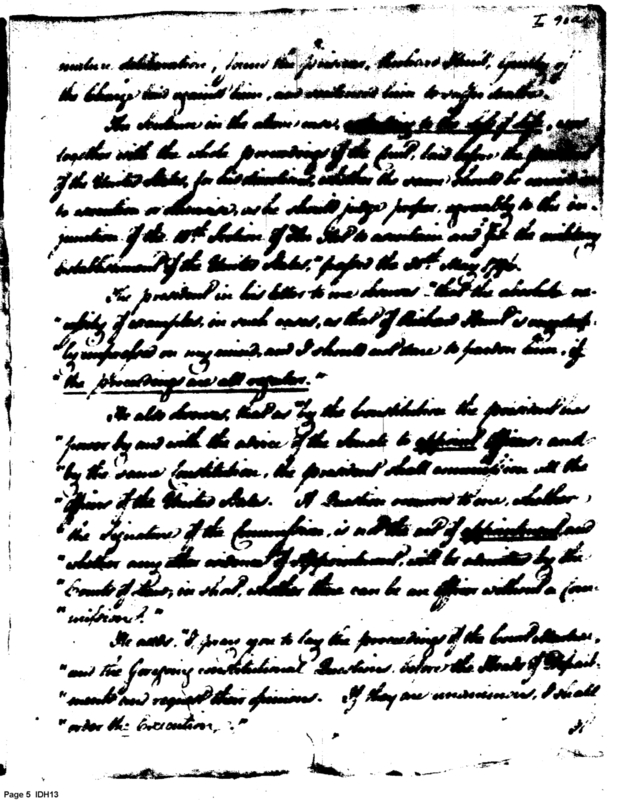 I 90a
2.
mature deliberation, found the prisoner, Richard Hunt, guilty of
the Charge laid against him, and sentenced him to suffer death.
The Sentence in the above case, extending to the loss of life, was
together with the whole proceedings of the Court, laid before the President
of the United States, for his directions, whether the same should be carried in
to execution or otherwise, as he should judge proper, agreeably to the in-
junction of the 18th Section of "An Act to ascertain and fix the military
establishment of the United States," passed the 30th May 1796.
The president in his letter to me observes "that the absolute ne-
"cessity of examples, in such cases, as that of Richard Hunt is
"by impressed on my mind, and I should not dare to pardon him, if
"the proceedings are all regular."
He also observes, that as "by the Constitution the president has
"power by and with the advice of the Senate to appoint Officers: and
"by the same Constitution, the president shall commission all the
"officers of the United States. A Question occurred to me, whether
"the Signature of the Commission, is not the act of appointment, and
"whether any other evidence of Appointment, will be admitted by the
"Courts of Law; in short, whether there can be an Officer without a Com-
"mission."
He adds, "I pray you to lay the proceedings of the Court Martial,
"and the foregoing constitutional Questions, before the Heads of Depart-
"ments and request their opinions. If they are unanimous, I shall
"order the Execution."
Page 5 IDH13